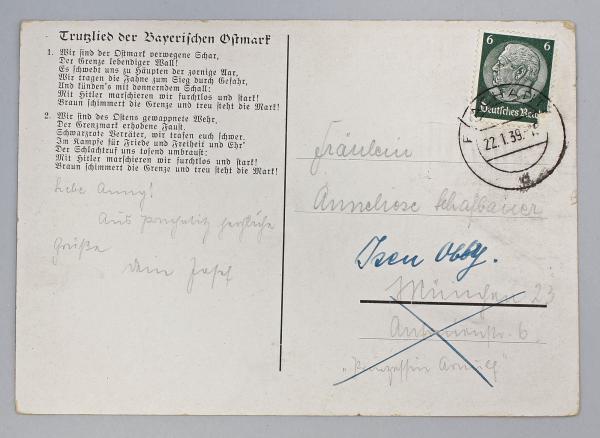 Trutzlied der Bayerischen Ostmark
1. Wir sind der Ostmark verwegene Schar,
Der Grenze lebendiger Wall!
Es schwebt uns zu Häupten der zornige Aar,
Wir tragen die Fahne zum Sieg durch Gefahr,
Und künden's mit donnerndem Schall:
Mit Hitler marschieren wir furchtlos und stark!
Braun schimmert die Grenze und treu steht die Mark!
2. Wir sind des Ostens gewappnete Wehr,
Der Grenzmark erhobene Faust,
Schwarzrote Verräter, wir trafen euch schwer.
Im Kampfe für Friede und Freiheit und Ehr'
Der Schlachtruf uns tosend umbraust:
Mit Hitler marschieren wir furchtlos und stark!
Braun schimmert die Grenze und treu steht die Mark!
Liebe Anny!
Aus herzliche
Grüße
Dein Josef
6 6
Deutsches Reich
22.1.39
Fräulein
Anneliese Schafbauer
Isen Obby.
München 23
6